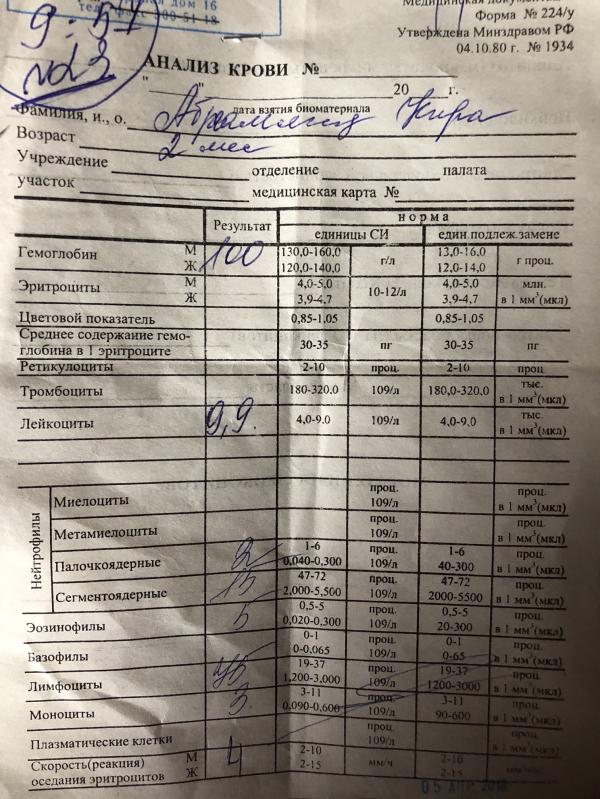 дом 16
тел./факс 300-51-18
9:57
№23
Медицинская документация
Форма № 224/у
Утверждена Минздравом РФ
04.10.80 г. № 1934
АНАЛИЗ КРОВИ №
" " 20 г.
дата взятия биоматериала
Фамилия, и., о. Кира
Возраст 2 мес
Учреждение отделение палата
участок медицинская карта №
Результат норма
единицы СИ един.подлеж.замене
Гемоглобин М 100 130,0-160,0 г/л 13,0-16,0 г проц.
Ж 120,0-140,0 12,0-14,0
Эритроциты М 4,0-5,0 10-12/л 4,0-5,0 млн.
Ж 3,9-4,7 3,9-4,7 в 1 мм³(мкл)
Цветовой показатель 0,85-1,05 0,85-1,05
Среднее содержание гемо-
глобина в 1 эритроците 30-35 пг 30-35 пг
Ретикулоциты 2-10 проц. 2-10 проц
Тромбоциты 180-320.0 109/л 180,0-320,0 тыс.
в 1 мм³(мкл)
Лейкоциты 9,9. 4,0-9.0 109/л 4,0-9.0 тыс.
в 1 мм³(мкл)
Нейтрофилы
Миелоциты проц. проц.
109/л в 1 мм³(мкл)
Метамиелоциты проц. проц.
109/л в 1 мм³(мкл)
Палочкоядерные 2 1-6 проц. 1-6 проц.
0,040-0,300 109/л 40-300 в 1 мм³(мкл)
Сегментоядерные 15 47-72 проц. 47-72 проц.
2,000-5,500 109/л 2000-5500 в 1 мм³(мкл)
Эозинофилы 5 0,5-5 проц. 0,5-5 проц.
0,020-0,300 109/л 20-300 в 1 мм³(мкл)
Базофилы 0-1 проц. 0-1 проц.
0-0,065 109/л 0-65 в 1 мм³(мкл)
Лимфоциты 19-37 проц. 19-37 проц
1,200-3,000 109/л 1200-3000 в 1 мм³(мкл)
Моноциты 3 3-11 проц. 3-11 проц
0,090-0,600 109/л 90-600 в 1 мм³(мкл)
Плазматические клетки проц. проц
109/л в 1 мм³(мкл)
Скорость(реакция) М 4 2-10 мм/ч 2-10
оседания эритроцитов Ж 2-15 2-15
05 АПР 2018